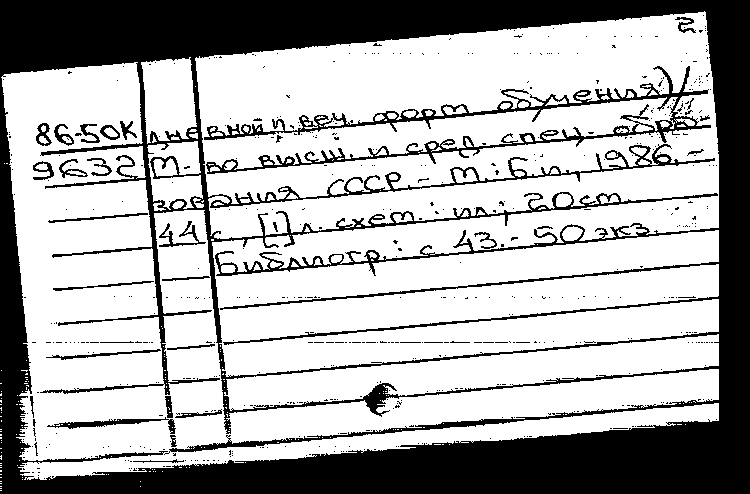 2.
86-50К дневной и веч. форм обучения) /
9632 М-во высш. и сред. спец. обра-
зования СССР. - М.: Б.и., 1986. -
44 с., [1] л. схем. : ил.; 20 см.
Библиогр.: с 43. - 50 экз.